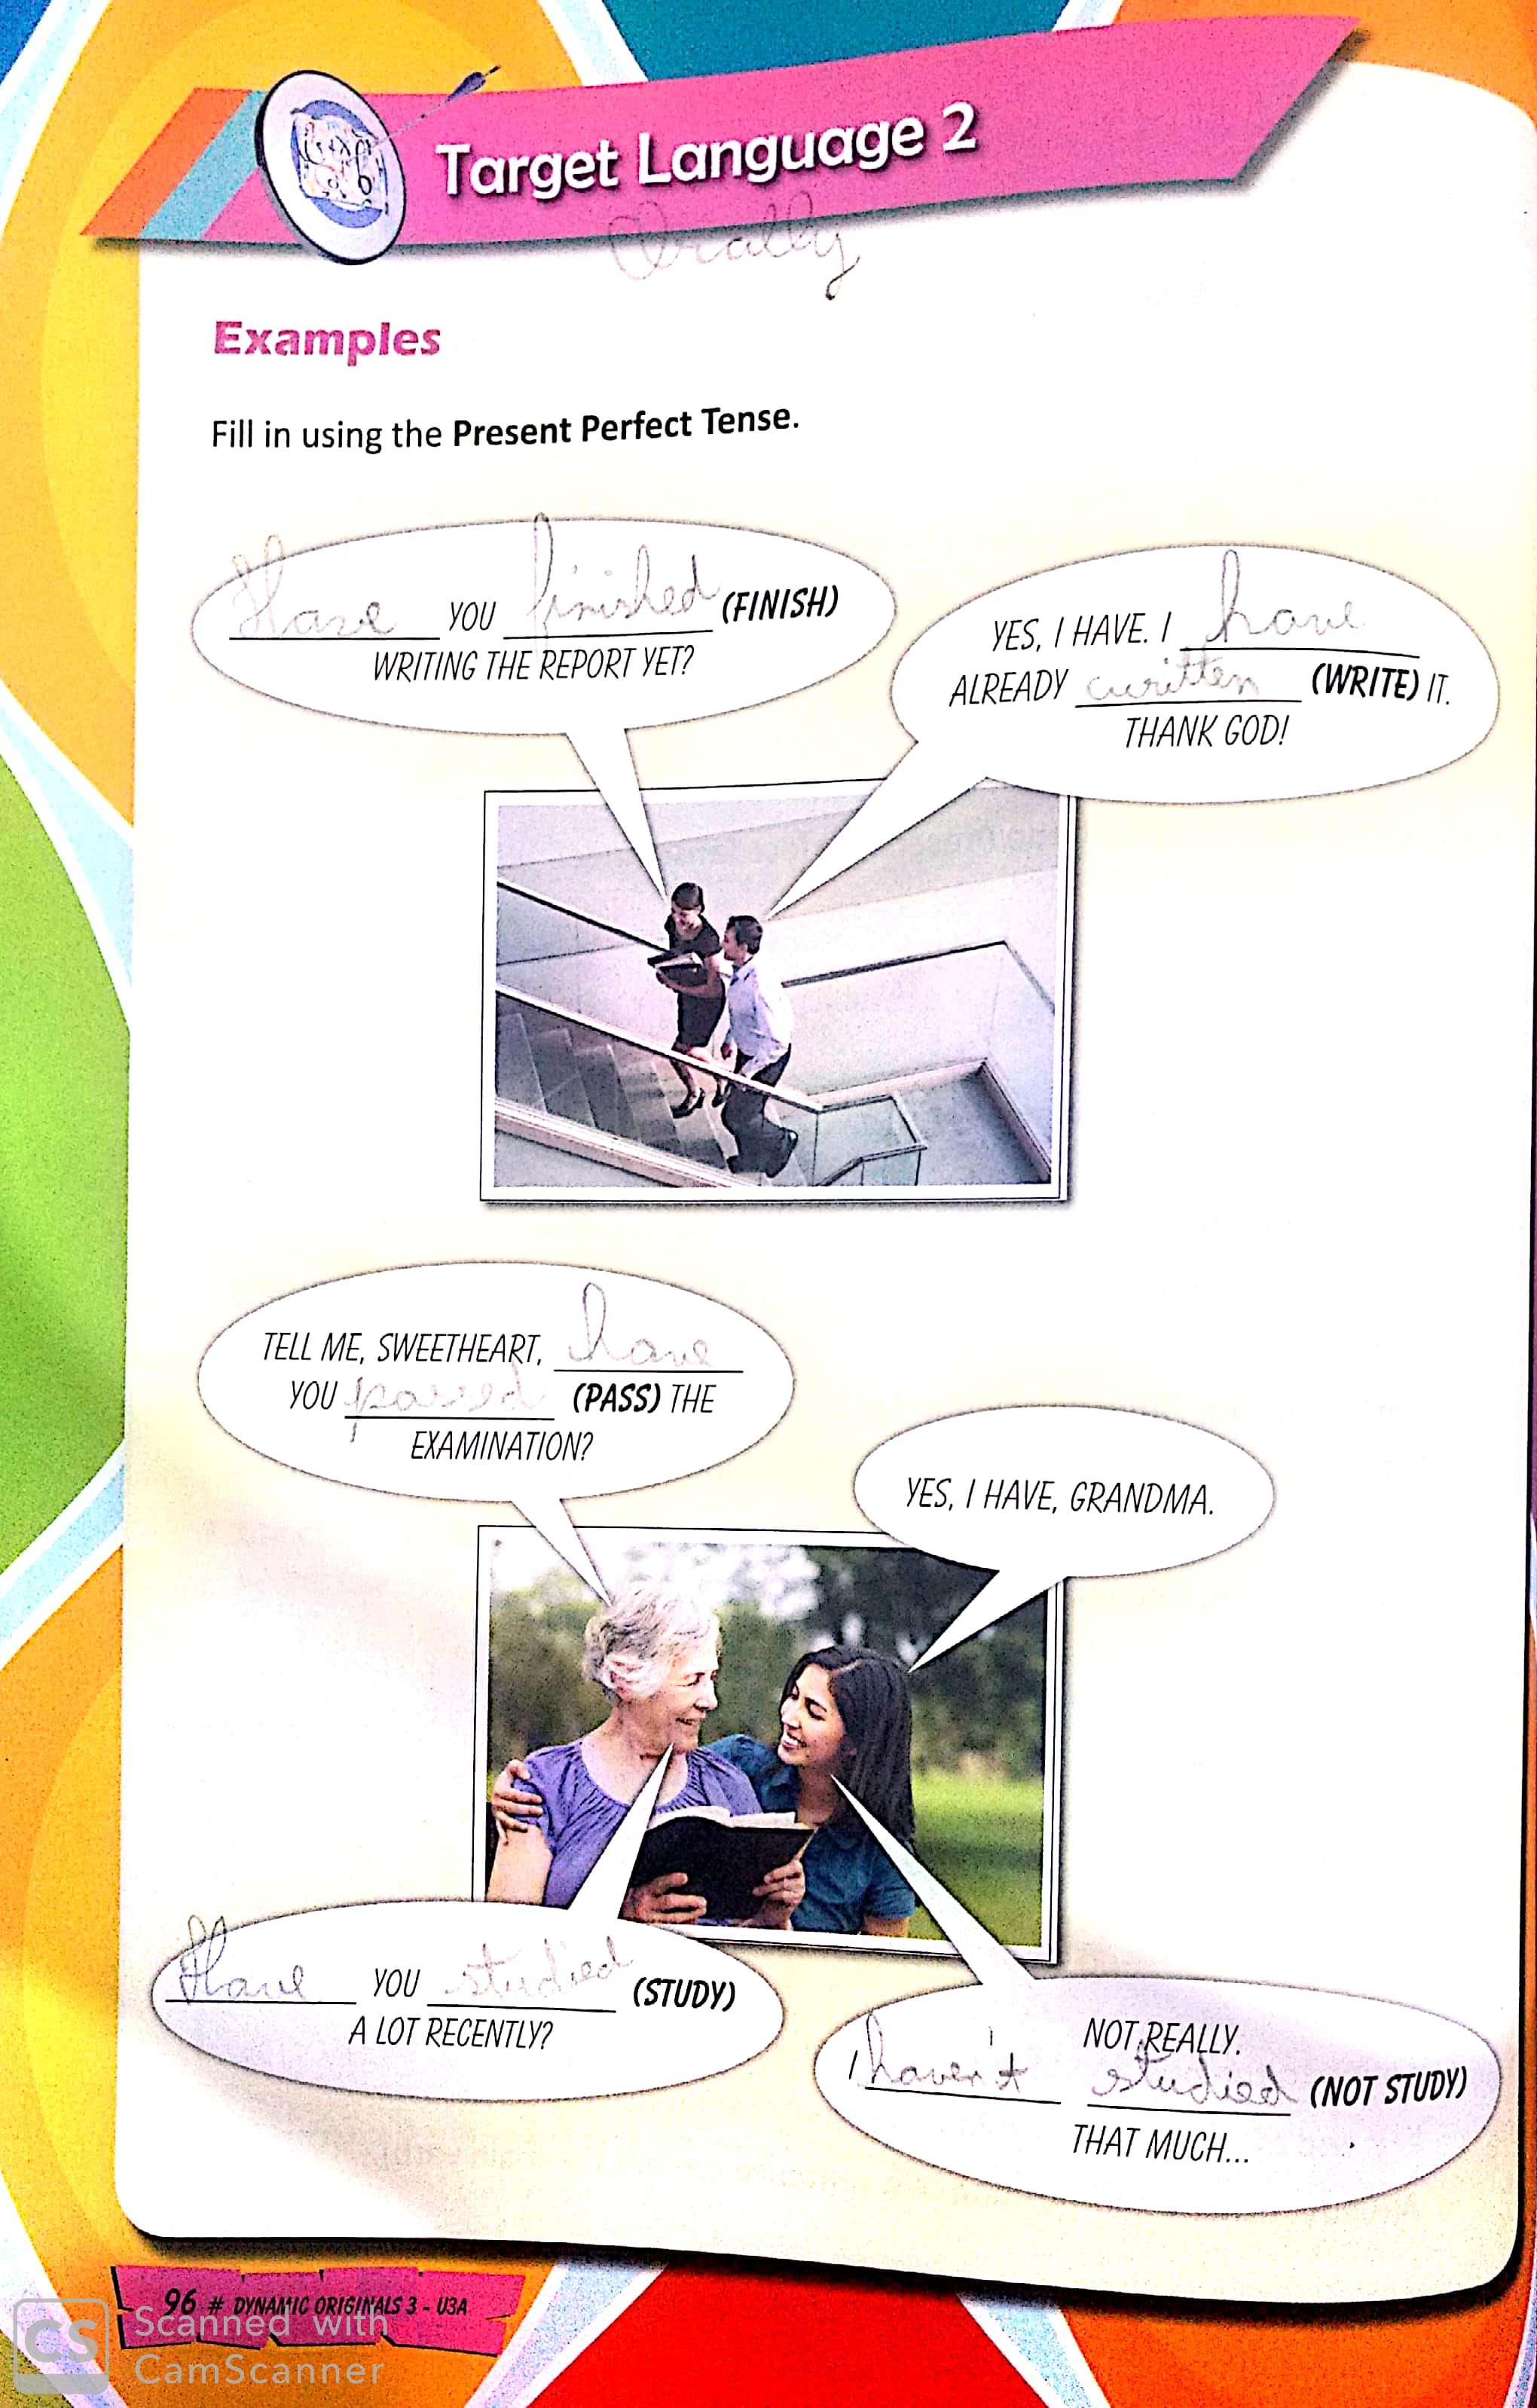 Target Language 2
Orally
Examples
Fill in using the Present Perfect Tense.
Have YOU finished (FINISH)
WRITING THE REPORT YET?
YES, I HAVE. I have
ALREADY written (WRITE) IT.
THANK GOD!
TELL ME, SWEETHEART, have
YOU passed (PASS) THE
EXAMINATION?
YES, I HAVE, GRANDMA.
Have YOU studied (STUDY)
A LOT RECENTLY?
NOT REALLY.
I haven't studied (NOT STUDY)
THAT MUCH...
96 # DYNAMIC ORIGINALS 3 - U3A
CS Scanned with
CamScanner